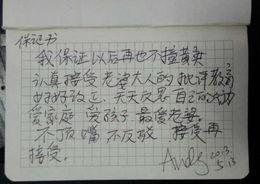 保证书
我保证以后再也不撞黄卖
认真接受老婆大人的批评教育
好好改过,天天反思自己的行动
爱家庭 爱孩子 最爱老婆。
不顶嘴 不反驳 接受再
接受。
Andy 2013.
5.13